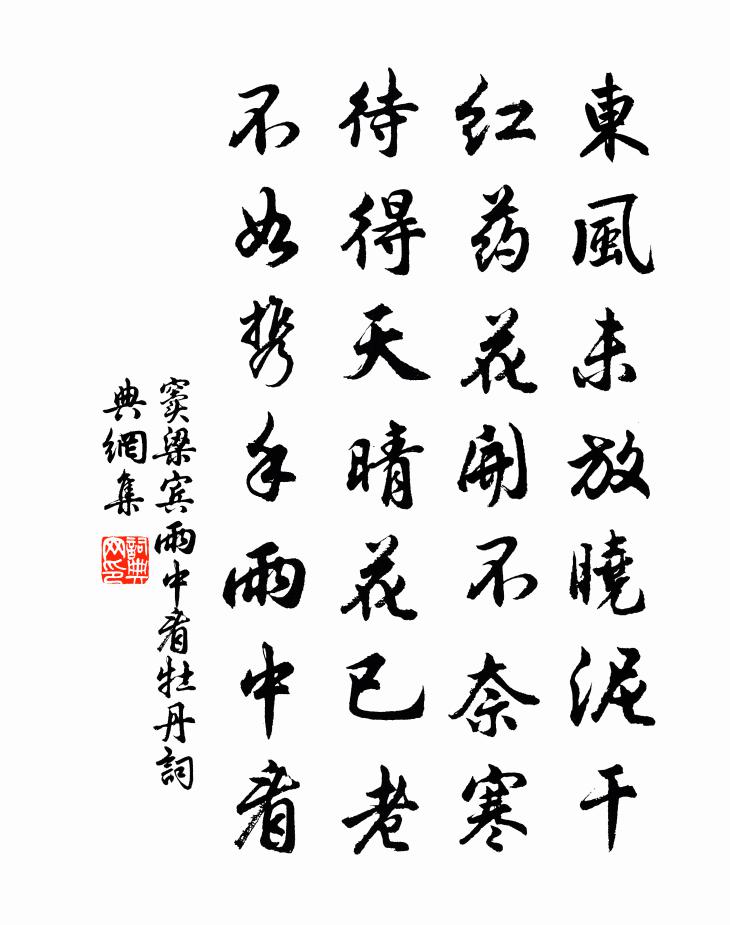 東風未放曉泥干
红药花開不奈寒
待得天晴花已老
不如携手雨中看
窦梁宾雨中看牡丹詞
典網集
詞典網印